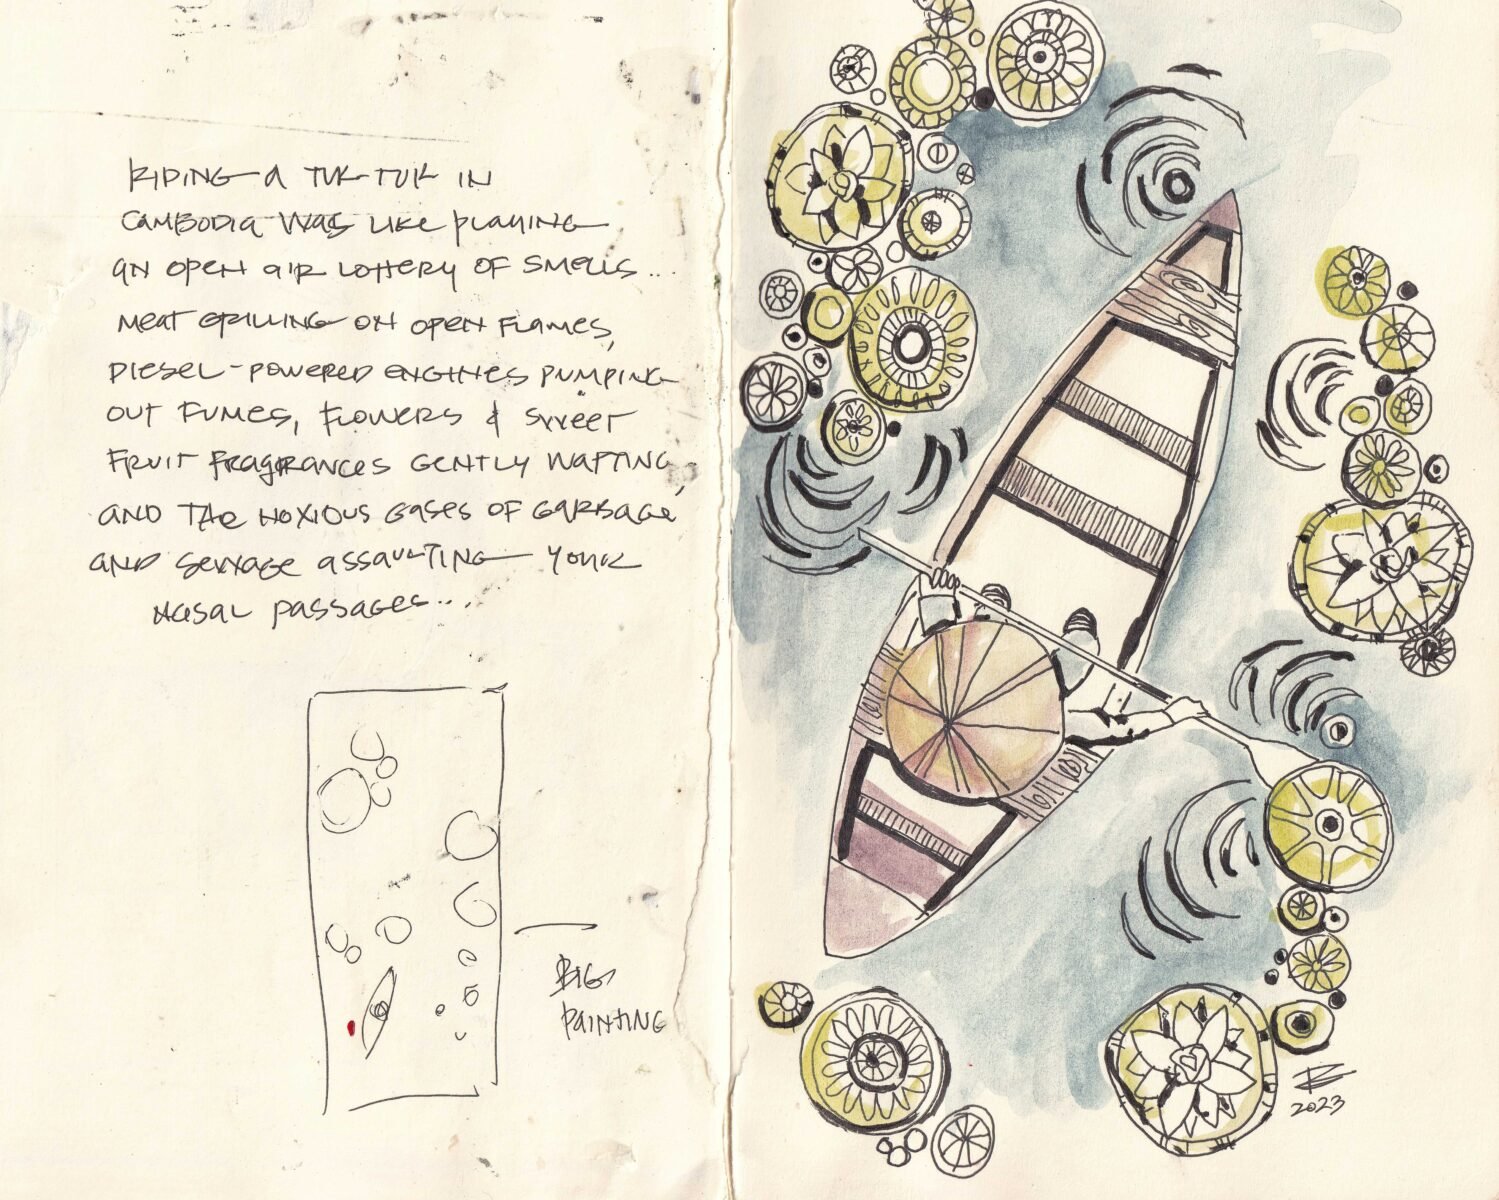 RIDING A TUK-TUK IN
CAMBODIA WAS LIKE PLAYING
AN OPEN AIR LOTTERY OF SMELLS...
MEAT GRILLING ON OPEN FLAMES,
DIESEL-POWERED ENGINES PUMPING
OUT FUMES, FLOWERS & SWEET
FRUIT FRAGRANCES GENTLY WAFTING,
AND THE NOXIOUS GASES OF GARBAGE
AND SEWAGE ASSAULTING YOUR
NASAL PASSAGES...
BIG
PAINTING
2023